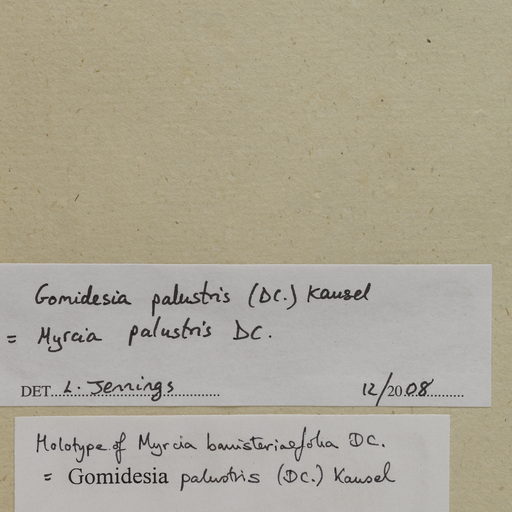 Gomidesia palustris (DC.) Kausel
= Myrcia palustris DC.
DET. L. Jennings 12/2008
Holotype of Myrcia banisteriaefolia DC.
= Gomidesia palustris (DC.) Kausel